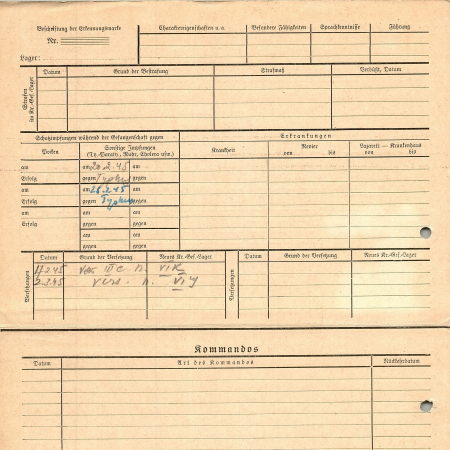 Beschriftung der Erkennungsmarke
Nr.
Lager:
Charaktereigenschaften u. a.
Besondere Fähigkeiten
Sprachkenntnisse
Führung
Strafen im Kr.-Gef.-Lager
Datum
Grund der Bestrafung
Strafmaß
Verbüßt, Datum
Schutzimpfungen während der Gefangenschaft gegen
Erkrankungen
Pocken
Sonstige Impfungen
(Ty.-Paraty., Ruhr, Cholera usw.)
Krankheit
Revier
von bis
Lazarett — Krankenhaus
von bis
am am 20.2.45 am
Erfolg gegen Typhus gegen
am am 26.2.45 am
Erfolg gegen Typhus gegen
am am am
Erfolg gegen gegen
am am
gegen gegen
Versetzungen
Datum Grund der Versetzung Neues Kr.-Gef.-Lager
Versetzungen
Datum Grund der Versetzung Neues Kr.-Gef.-Lager
III C n. VI K
2.3.45 vers. n. VI J
Kommandos
Datum
Art des Kommandos
Rückkehrdatum